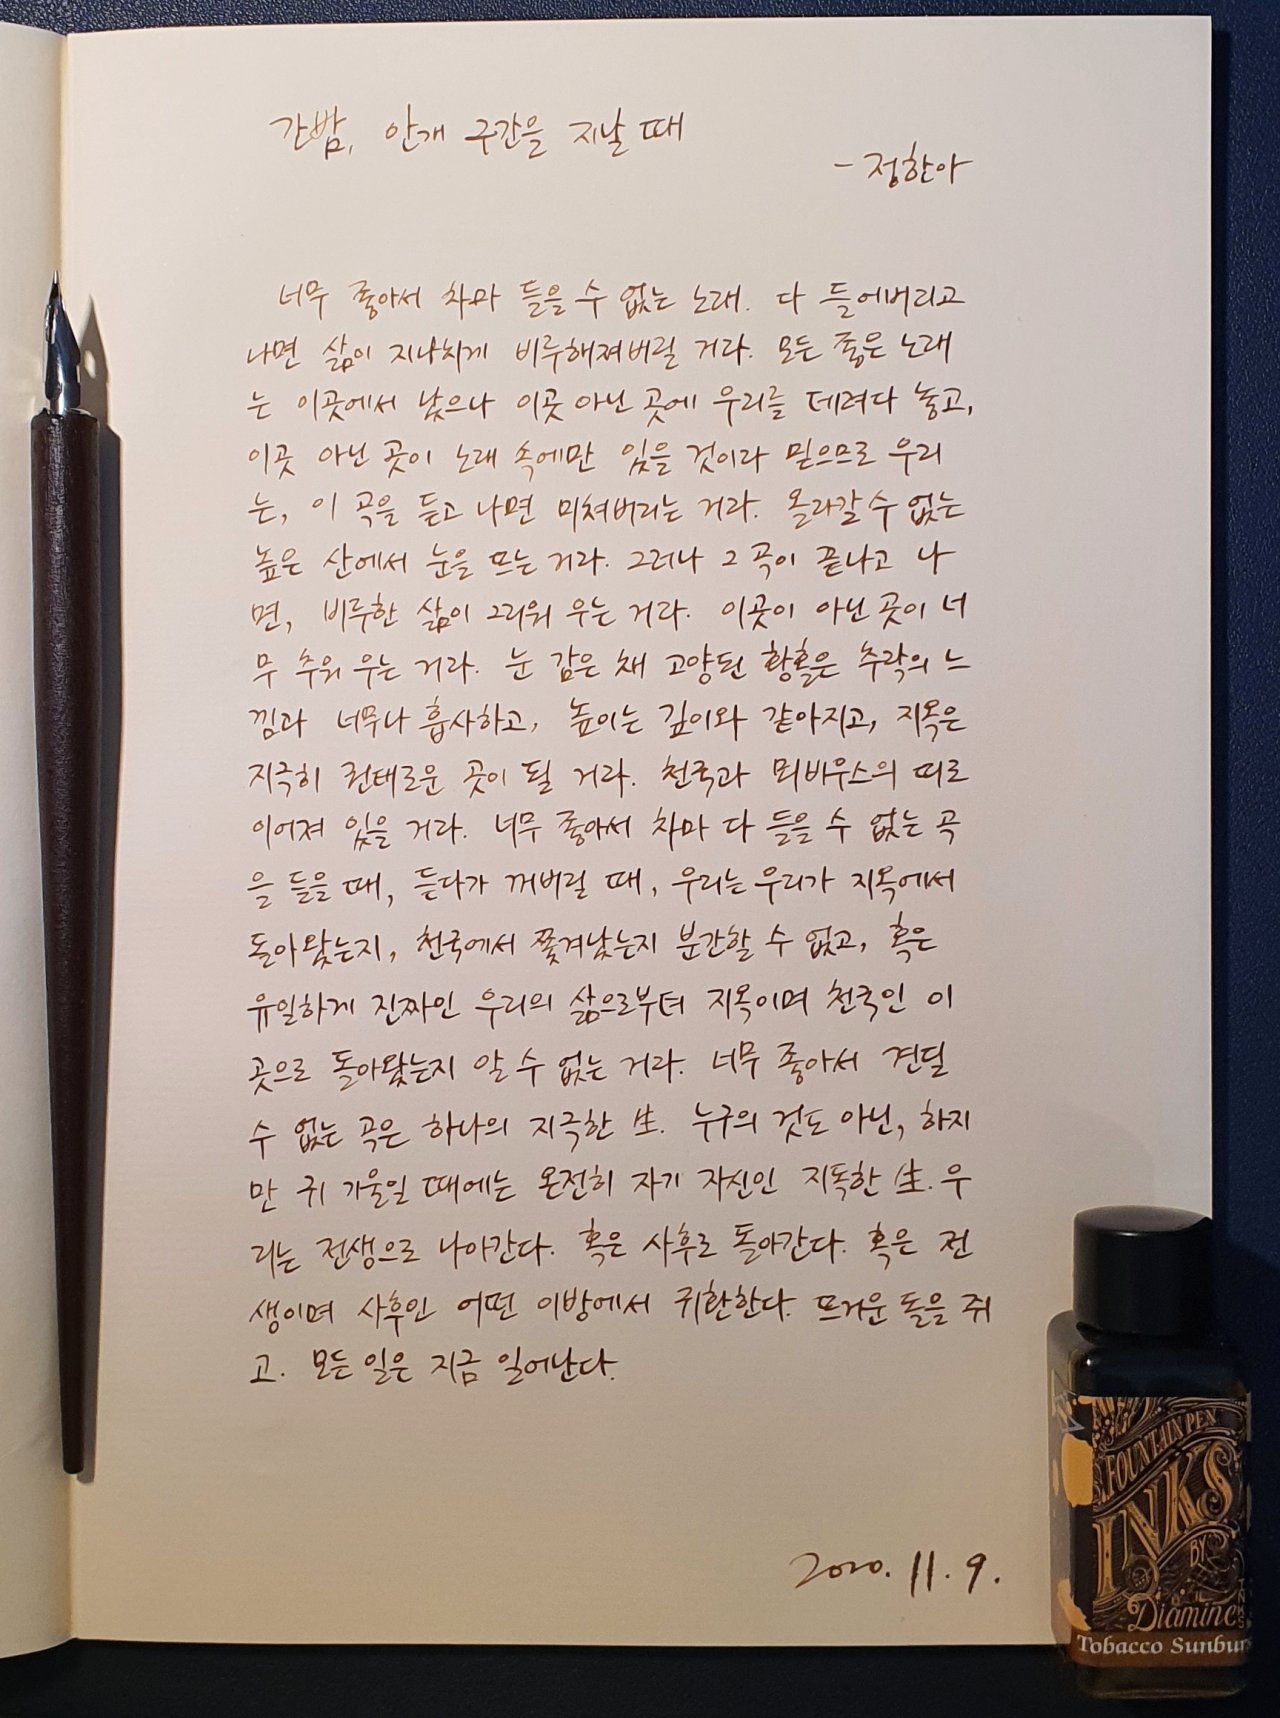 간밤, 안개 구간을 지날 때
- 정한아
너무 좋아서 차마 들을 수 없는 노래. 다 들어버리고
나면 삶이 지나치게 비루해져버릴 거라. 모든 좋은 노래
는 이곳에서 났으나 이곳 아닌 곳에 우리를 데려다 놓고,
이곳 아닌 곳이 노래 속에만 있을 것이라 믿으므로 우리
는, 이 곡을 듣고 나면 미쳐버리는 거라. 올라갈 수 없는
높은 산에서 눈을 뜨는 거라. 그러나 그 곡이 끝나고 나
면, 비루한 삶이 그리워 우는 거라. 이곳이 아닌 곳이 너
무 추워 우는 거라. 눈 감은 채 고양된 황홀은 추락의 느
낌과 너무나 흡사하고, 높이는 깊이와 같아지고, 지옥은
지극히 권태로운 곳이 될 거라. 천국과 뫼비우스의 띠로
이어져 있을 거라. 너무 좋아서 차마 다 들을 수 없는 곡
을 들을 때, 듣다가 꺼버릴 때, 우리는 우리가 지옥에서
돌아왔는지, 천국에서 쫓겨났는지 분간할 수 없고, 혹은
유일하게 진짜인 우리의 삶으로부터 지옥이며 천국인 이
곳으로 돌아왔는지 알 수 없는 거라. 너무 좋아서 견딜
수 없는 곡은 하나의 지극한 生. 누구의 것도 아닌, 하지
만 귀 기울일 때에는 온전히 자기 자신인 지독한 生. 우
리는 전생으로 나아간다. 혹은 사후로 돌아간다. 혹은 전
생이며 사후인 어떤 이방에서 귀환한다. 뜨거운 돌을 쥐
고. 모든 일은 지금 일어난다.
2020. 11. 9.
FOUNTAIN PEN
INKS
BY
Diamine
Tobacco Sunburs